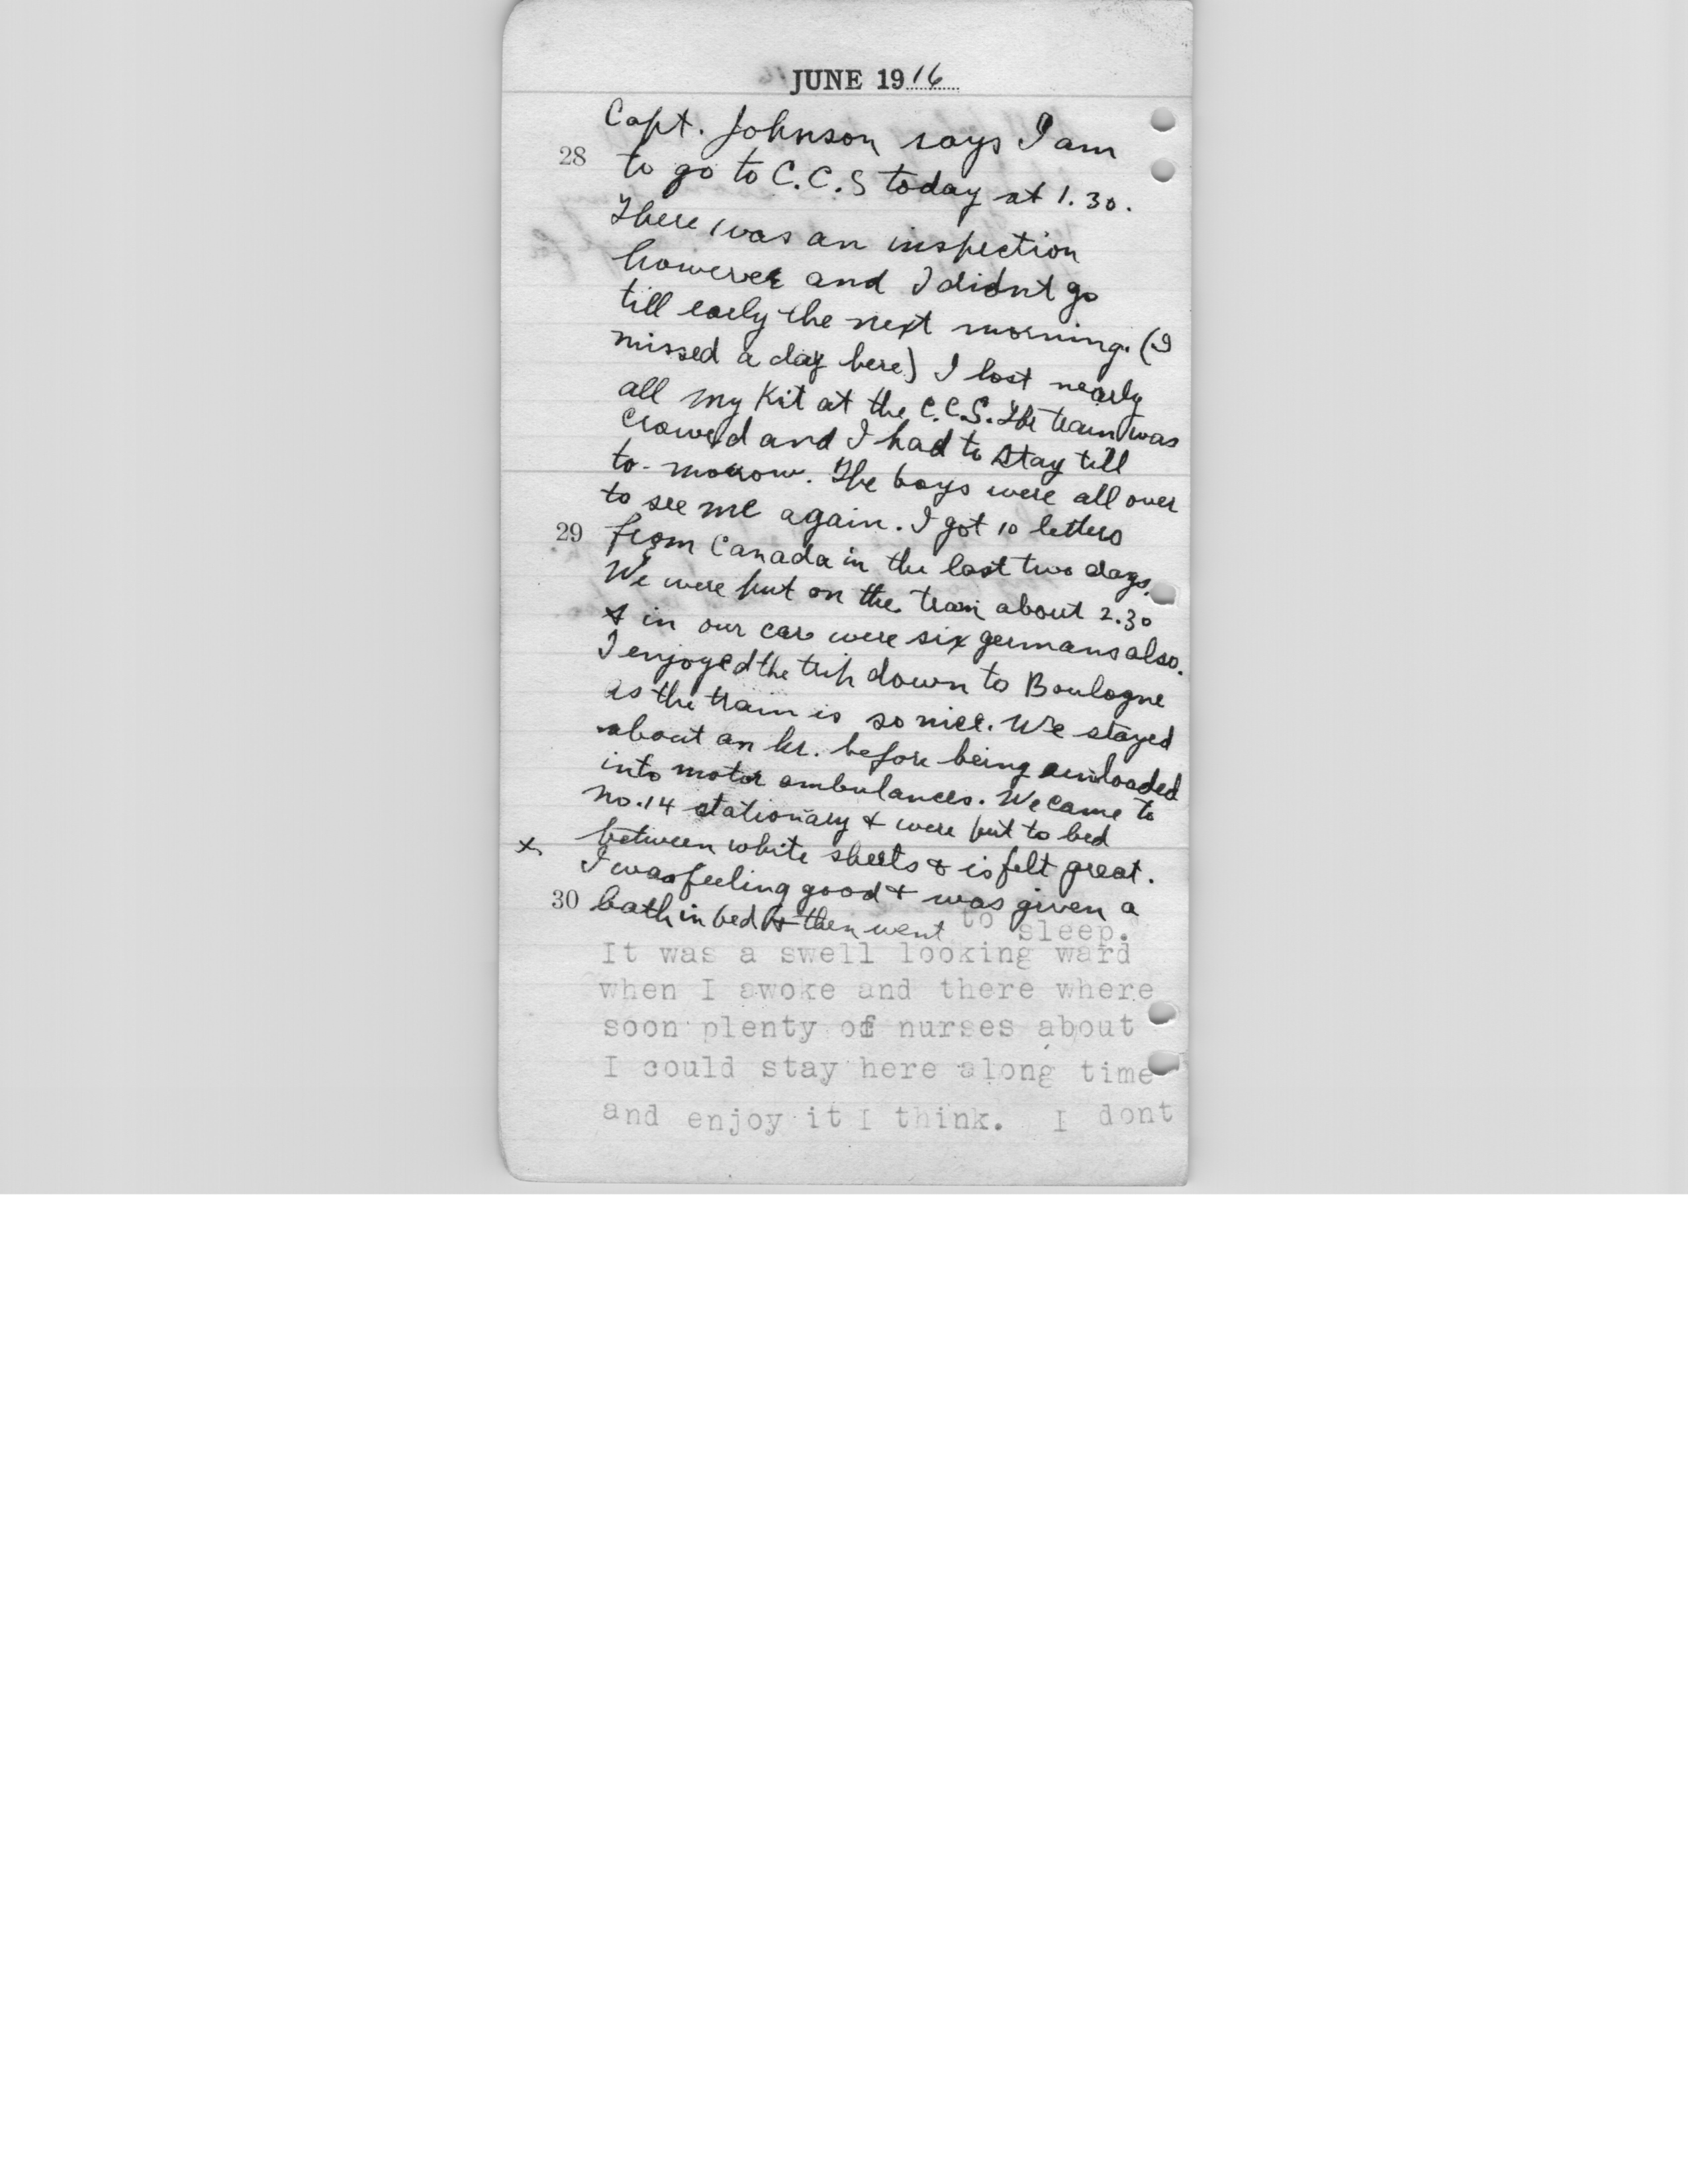 JUNE 1916
Capt. Johnson says I am
28 to go to C.C.S today at 1.30.
There was an inspection
however and I didnt go
till early the next morning. (I
missed a day here) I lost nearly
all my Kit at the C.C.S. The train was
crowed and I had to stay till
to-morrow. The boys were all over
to see me again. I got 10 letters
29 from Canada in the last two days.
We were put on the train about 2.30
& in our car were six germans also.
I enjoyed the trip down to Boulogne
as the train is so nice. We stayed
about an hr. before being unloaded
into motor ambulances. We came to
No.14 stationary & were put to bed
x between white sheets & is felt great.
I was feeling good & was given a
30 bath in bed & then went to sleep.
It was a swell looking ward
when I awoke and there where
soon plenty of nurses about
I could stay here along time
and enjoy it I think. I dont